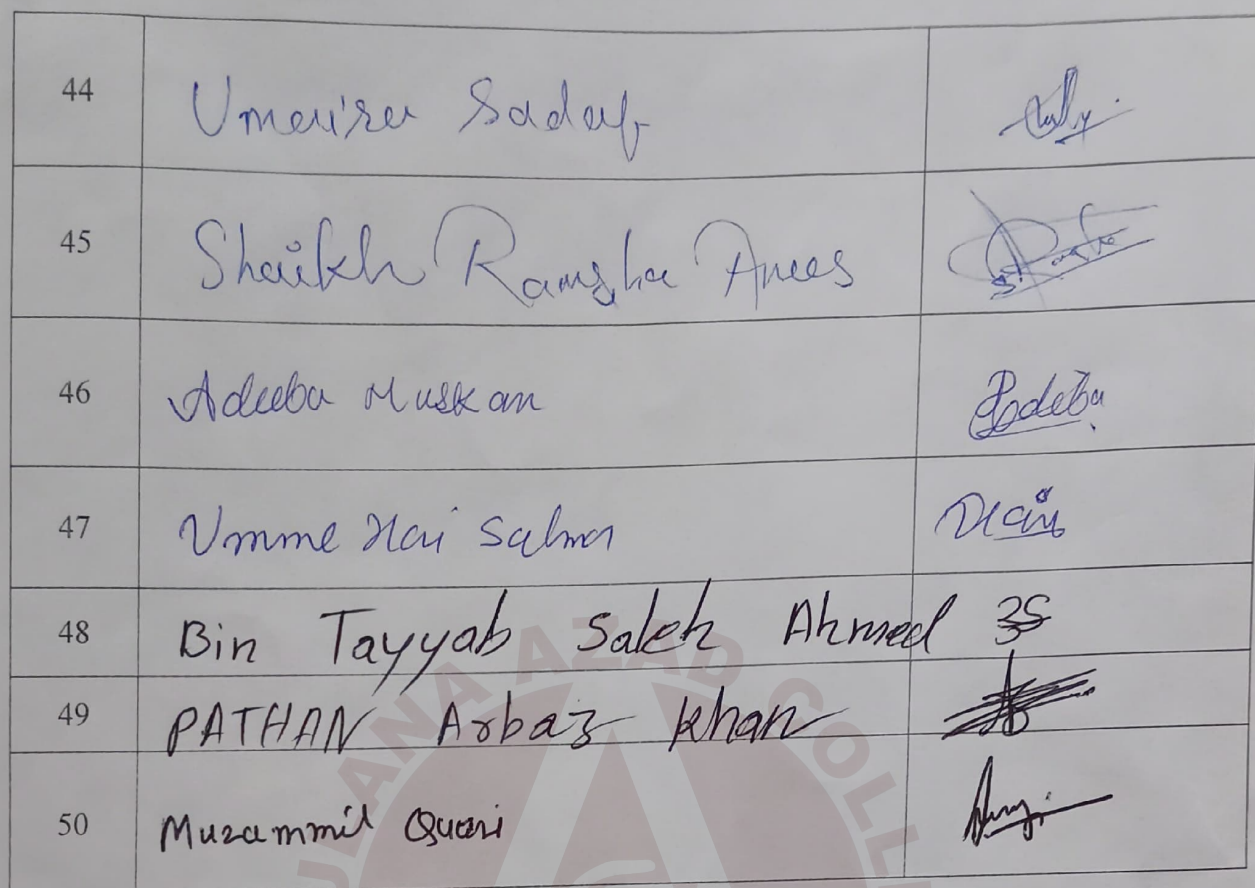 44 Umaira Sadaf
45 Shaikh Ramsha Anees
46 Adeeba Muskan Adeeba
47 Umme Hai Salma
48 Bin Tayyab Saleh Ahmed
49 PATHAN Arbaz Khan
50 Muzammil Quazi
ULANA AZAD COLL